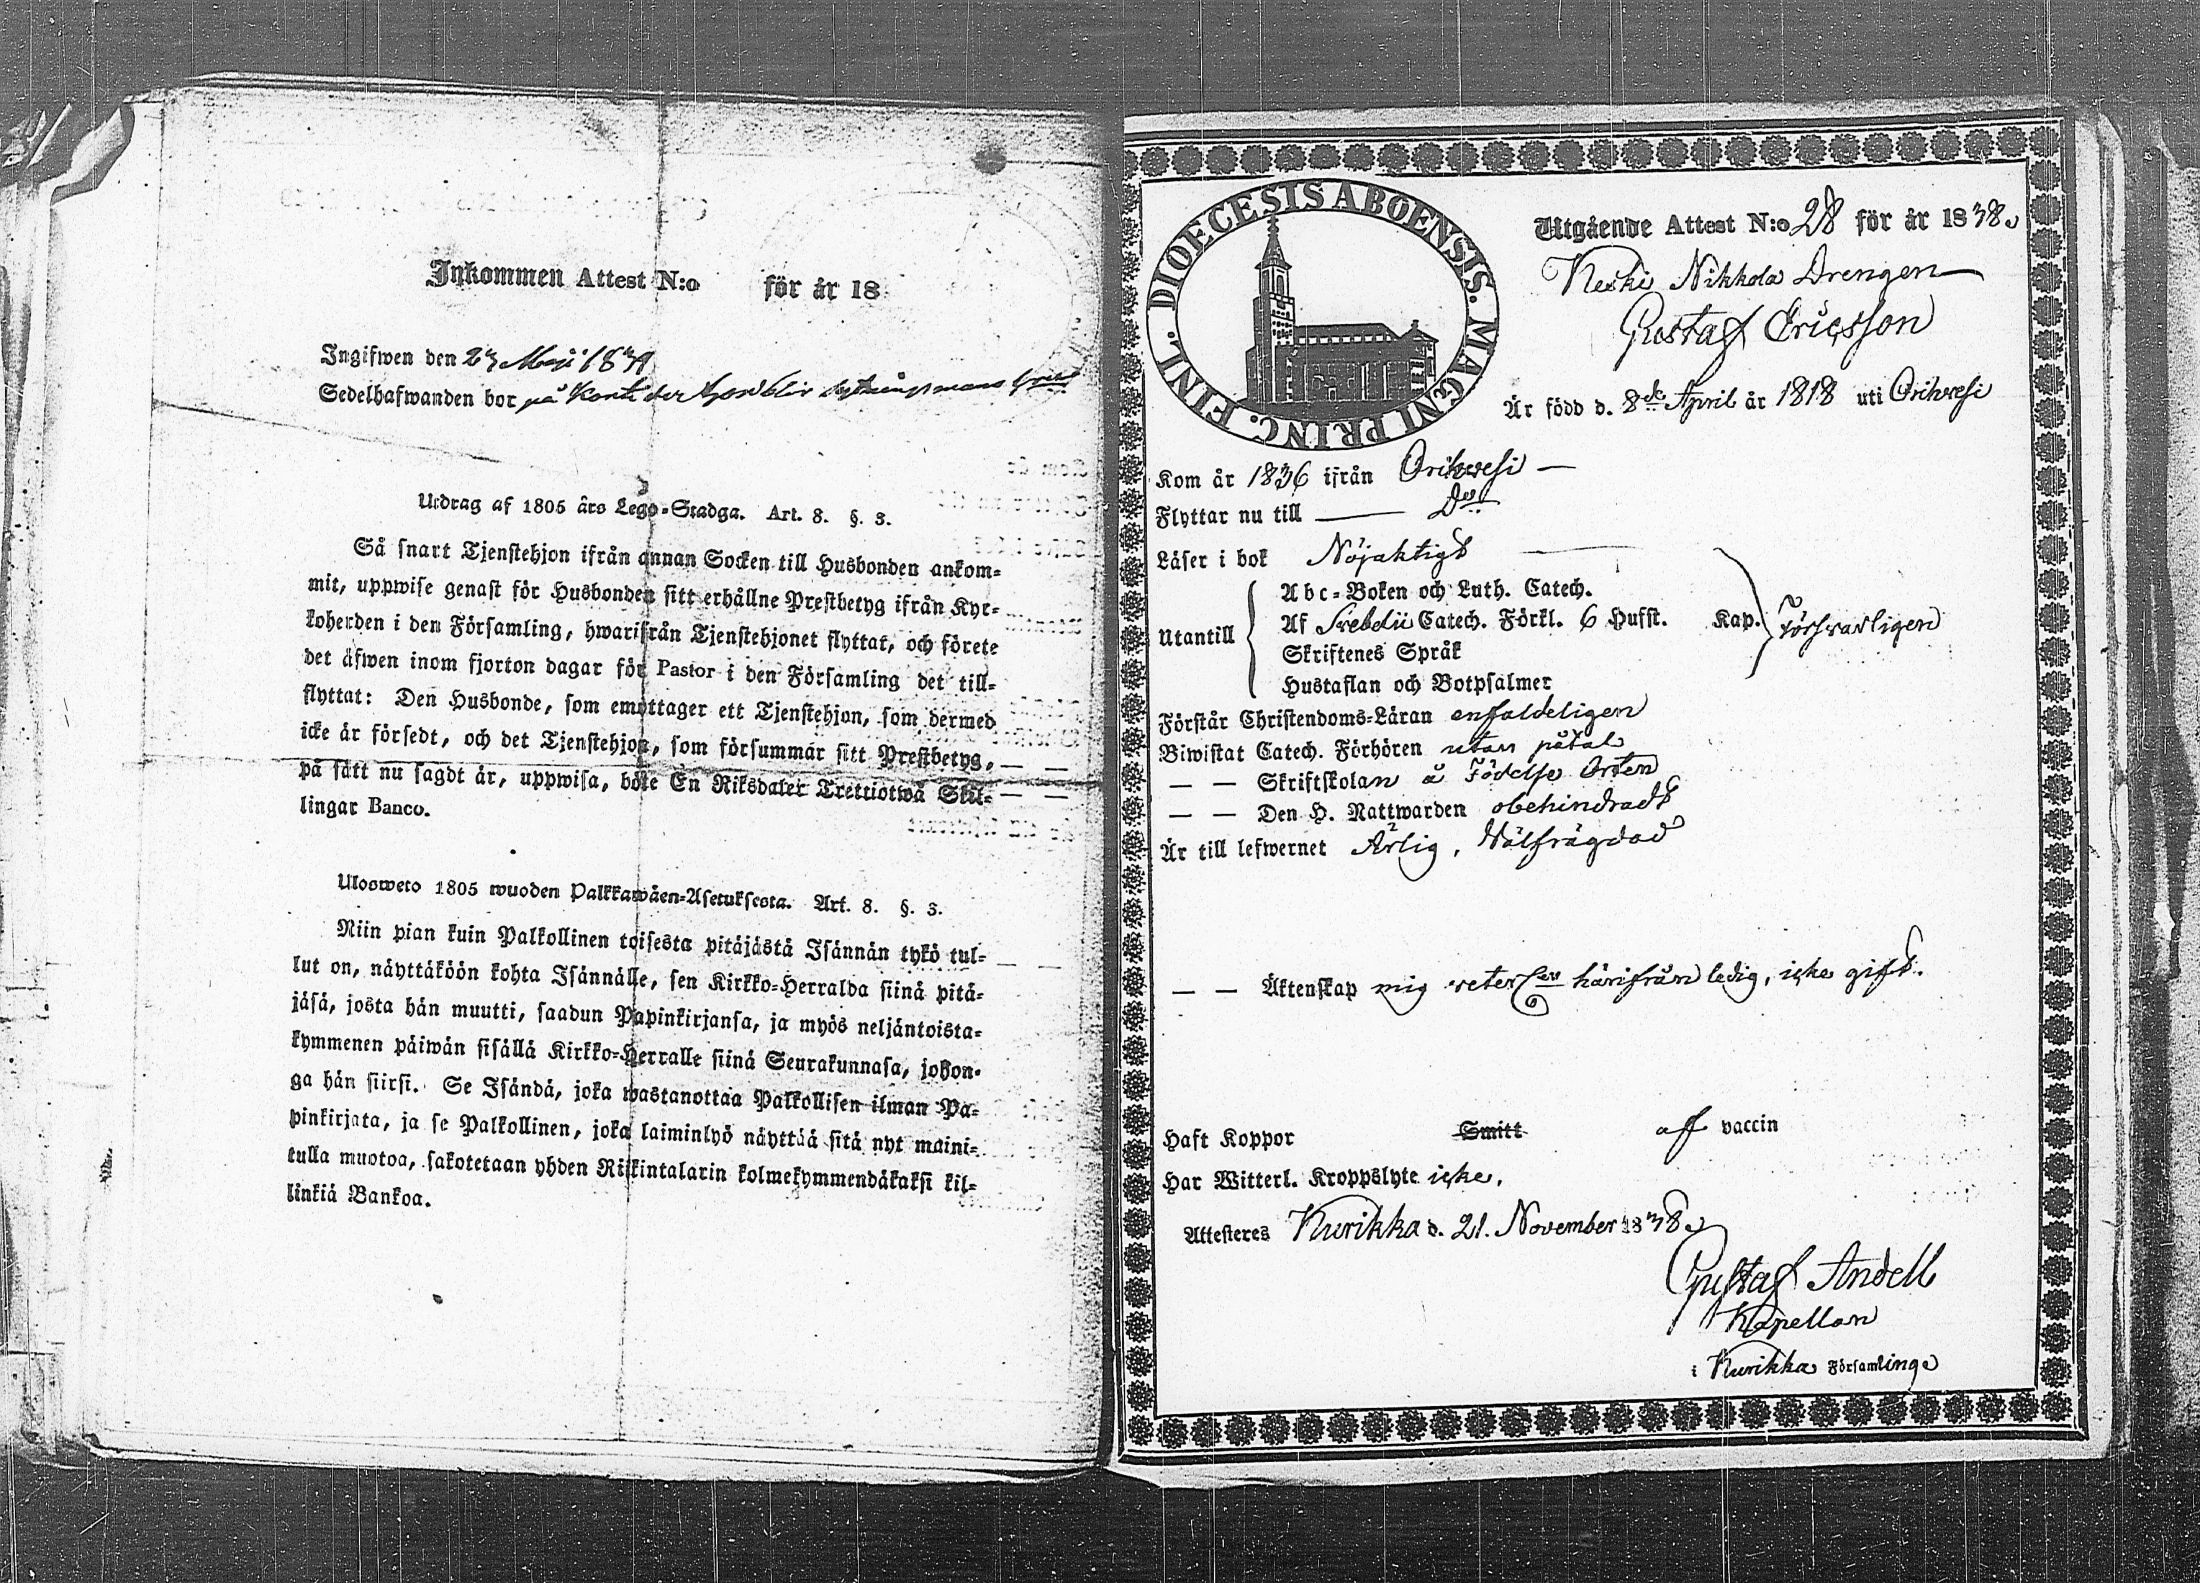 Inkommen Attest N:o för år 18
Ingifwen den 23 Maji 1839
Sedelhafwanden bor på
Utdrag af 1805 års Lego-Stadga. Art. 8. §. 3.
Så snart Tjenstehjon ifrån annan Socken till Husbonden ankom-
mit, uppwise genast för Husbonden sitt erhållne Prestbetyg ifrån Kyr-
koherden i den Församling, hwarifrån Tjenstehjonet flyttat, och förete
det äfwen inom fjorton dagar för Pastor i den Församling det till-
flyttat: Den Husbonde, som emottager ett Tjenstehjon, som dermed
icke är försedt, och det Tjenstehjon, som försummar sitt Prestbetyg,
på sätt nu sagdt är, uppwisa, böte En Riksdaler Trettiotwå Skil-
lingar Banco.
Ulosweto 1805 wuoden Palkkawäen-Asetuksesta. Art. 8. §. 3.
Niin pian kuin Palkollinen toisesta pitäjästä Isännän tykö tul-
lut on, näyttäköön kohta Isännälle, sen Kirkko-Herralda siinä pitä-
jäsä, josta hän muutti, saadun Papinkirjansa, ja myös neljäntoista-
kymmenen päiwän sisällä Kirkko-Herralle siinä Seurakunnasa, johon-
ga hän siirsi. Se Isändä, joka wastanottaa Palkollisen ilman Pa-
pinkirjata, ja se Palkollinen, joka laiminlyö näyttää sitä nyt maini-
tulla muotoa, sakotetaan yhden Riikintalarin kolmekymmendäkaksi kil-
linkiä Bankoa.
DIOECESIS ABOENSIS. MAGNI PRINC. FINL.
Utgående Attest N:o 28 för år 1838.
Keski Nikkola Drengen
Gustaf Ericsson
Är född d. 8de April år 1818 uti Orihvesi
Kom år 1836 ifrån Orihvesi —
Flyttar nu till — Do
Läser i bok Nöjaktigt
Utantill
Abc-Boken och Luth. Catech.
Af Svebelii Catech. Förkl. 6 Hufst. Kap. Försvarligen
Skriftenes Språk
Hustaflan och Botpsalmer
Förstår Christendoms-Läran enfaldeligen
Biwistat Catech. Förhören utan påtal
— — Skriftskolan å Födelse Orten
— — Den H. Nattwarden obehindradt
Är till lefwernet Ärlig, Wälfrägdad
— — Äktenskap mig veterl. härifrån ledig, icke gift.
Haft Koppor Smitt af vaccin
Har Witterl. Kroppslyte icke.
Attesteres Kurikka d. 21. November 1838.
Gustaf Andell
Kapellan
i Kurikka Församling.